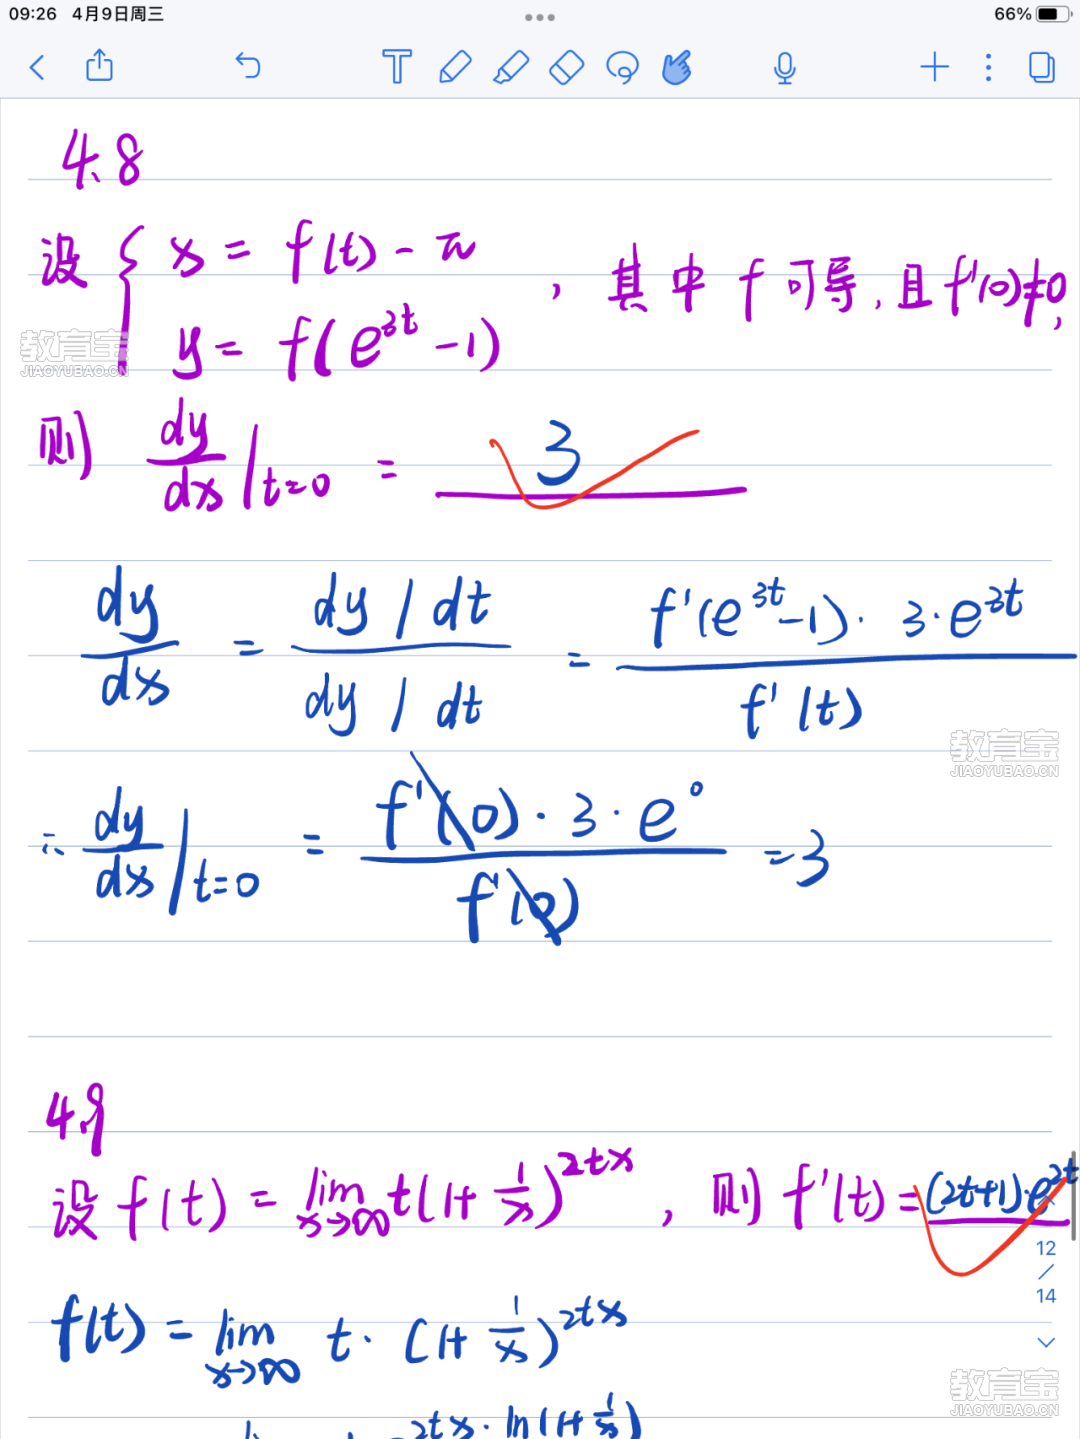 09:26 4月9日周三
66%
4.8
设 { x = f(t) - π
y = f(e^{3t} - 1)
, 其中 f 可导, 且 f'(0)≠0,
则 dy/dx |t=0 = 3
dy/dx = dy / dt / dy / dt = f'(e^{3t}-1)· 3·e^{3t} / f'(t)
∴ dy/dx |t=0 = f'(0)·3·e^0 / f'(0) =3
4.9
设 f(t) = lim x→∞ t(1+ 1/x)^{2tx} , 则 f'(t) = (2t+1)·e^{2t}
f(t) = lim x→∞ t· (1+ 1/x)^{2tx}
2tx· ln(1+ 1/x)
12
/
14
教育宝
JIAOYUBAO.CN
教育宝
JIAOYUBAO.CN
教育宝
JIAOYUBAO.CN